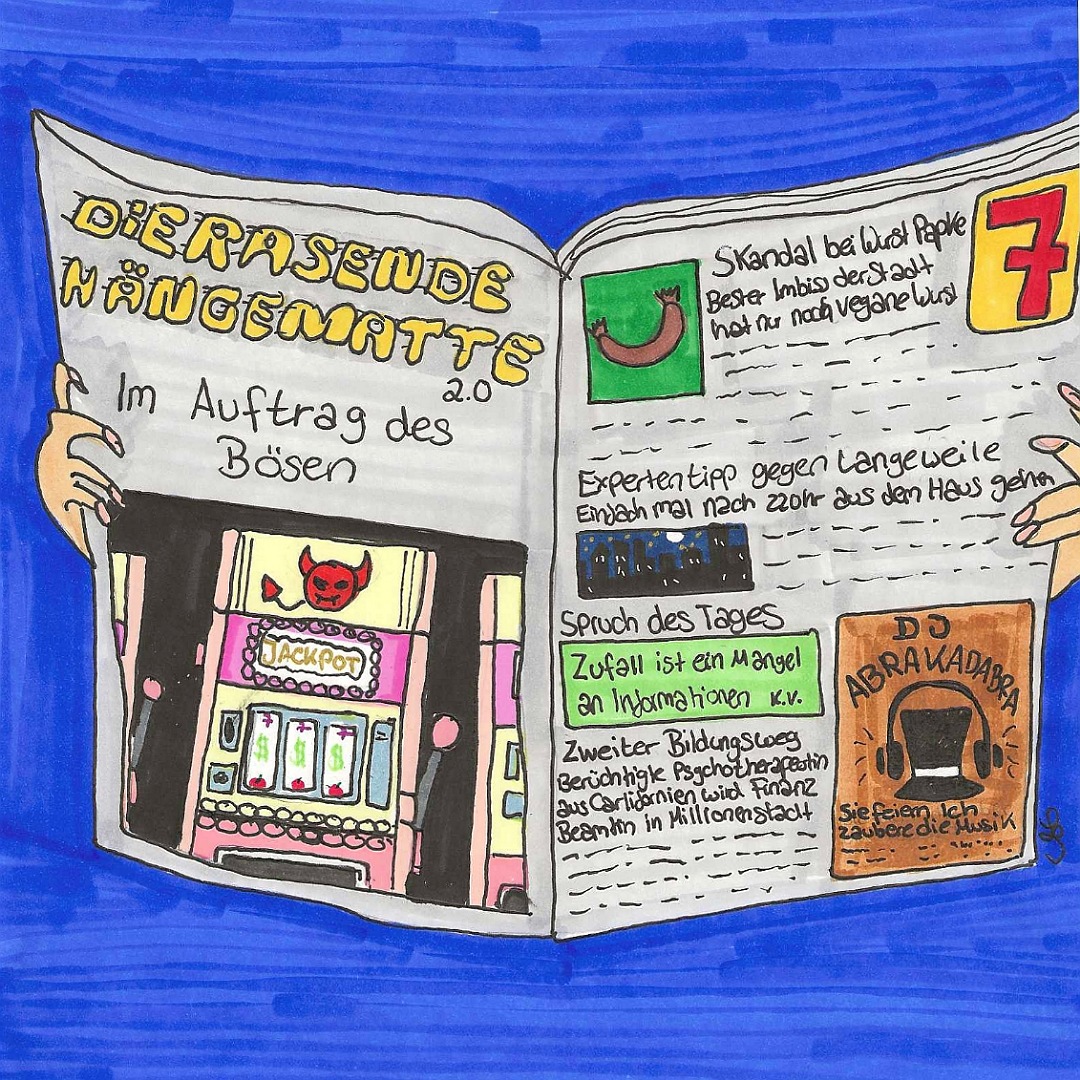 DiE RASENDE
HÄNGEMATTE
2.0
Im Auftrag des
Bösen
JACKPOT
7
Skandal bei Wurst Papke
Bester Imbiss der Stadt
hat nur noch vegane Wurst
Expertentipp gegen Langeweile
Einfach mal nach 22 Uhr aus dem Haus gehen
Spruch des Tages
Zufall ist ein Mangel
an Informationen K.V.
Zweiter Bildungsweg
Berüchtigte Psychotherapeutin
aus Carlifornien wird Finanz
Beamtin in Millionenstadt
DJ
ABRAKADABRA
Sie feiern, Ich
zaubere die Musik